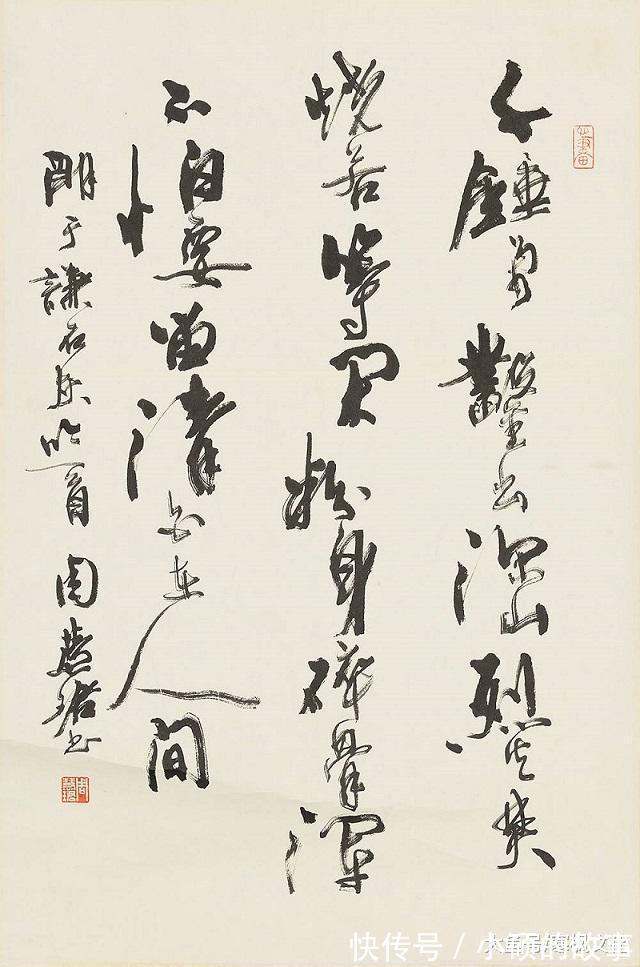 千錘萬鑿出深山烈火焚
燒若等閑粉身碎骨渾
不怕要留清白在人間
明于謙石灰吟一首 周慧珺书
快传号 / 小颖的故事